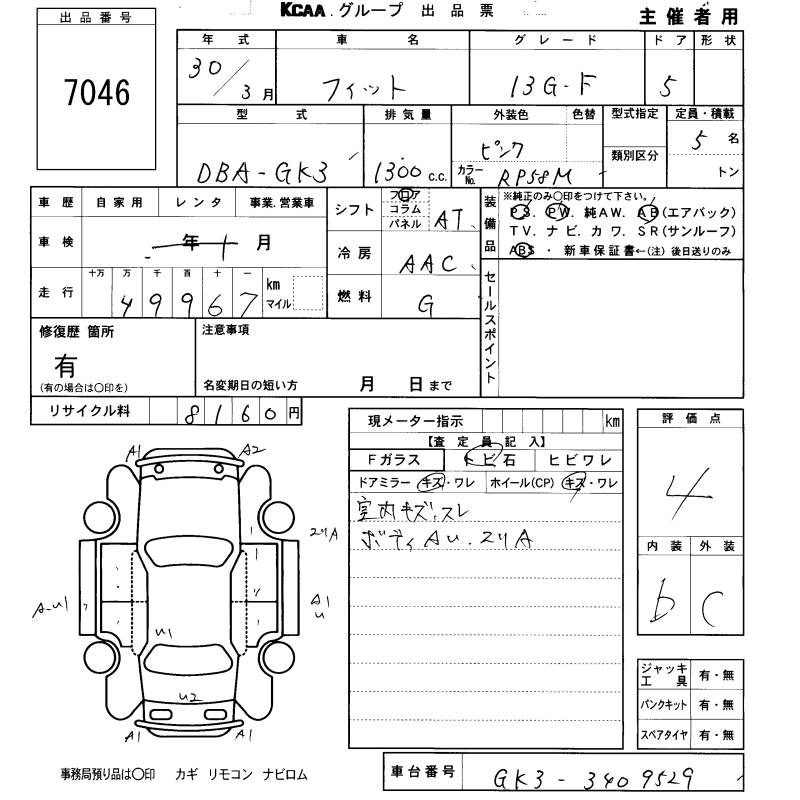 KCAA.グループ 出品票
主催者用
出品番号
7046
年式 車名 グレード ドア 形状
30/3月 フィット 13G-F 5
型式 排気量 外装色 色替 型式指定 定員・積載
DBA-GK3 1300 c.c. ピンク カラーNo. RP58M 類別区分 5名 トン
車歴 自家用 レンタ 事業.営業車
車検 年 月
走行 十万 万 千 百 十 一 km マイル
49967
シフト フロア コラム パネル AT
冷房 AAC
燃料 G
装備品
※純正のみ〇印をつけて下さい。
PS. PW. 純AW. AB(エアバック)
TV. ナビ. カワ. SR(サンルーフ)
ABS ・ 新車保証書←(注) 後日送りのみ
セールスポイント
修復歴 箇所
有
(有の場合は〇印を)
注意事項
名変期日の短い方 月 日まで
リサイクル料 8160円
現メーター指示 km
【査定員記入】
Fガラス トビ石 ヒビワレ
ドアミラー キズ・ワレ ホイール(CP) キズ・ワレ
室内キズ,スレ
ボディAU.スリA
評価点
4
内装 外装
b C
A1 A2
スリA
A-U1
A1
U
U1
U2
A1 A1
ジャッキ工具 有・無
パンクキット 有・無
スペアタイヤ 有・無
事務局預り品は〇印 カギ リモコン ナビロム
車台番号 GK3-3409529